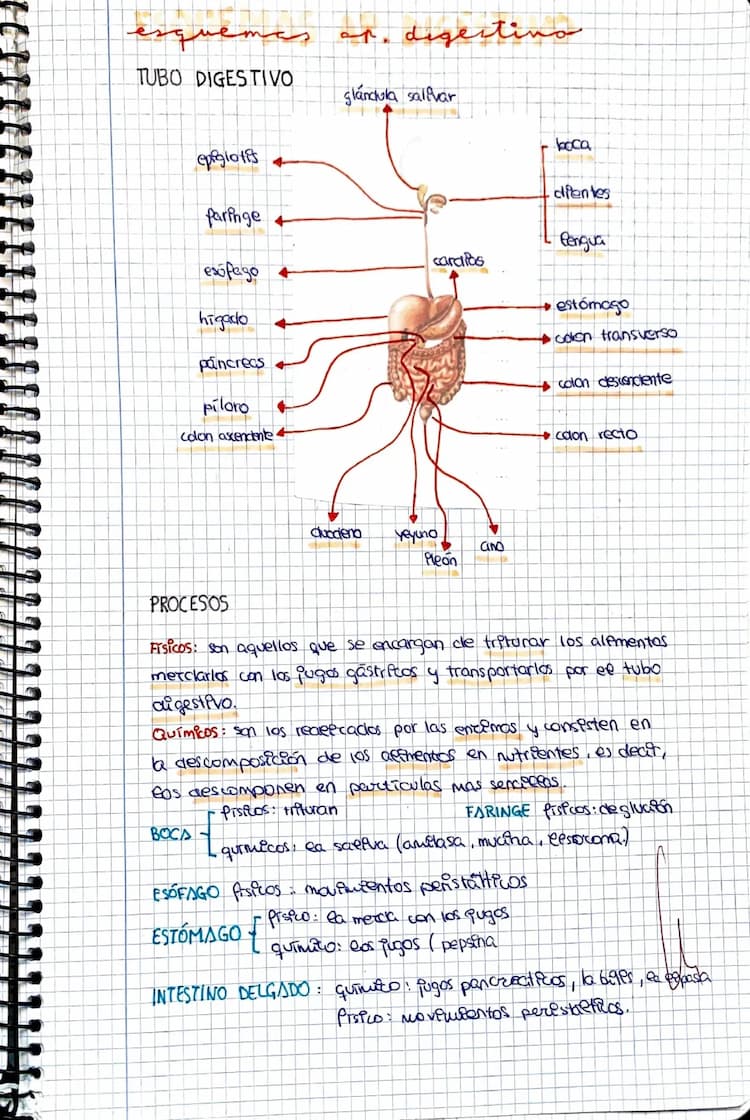 esquemas ap. digestivo
TUBO DIGESTIVO
glándula salivar
epiglotis
boca
faringe
dientes
lengua
esófago
cardias
hígado
estómago
colon transverso
páncreas
colon descendente
píloro
colon ascendente
colon recto
duodeno
yeyuno
ileón
ano
PROCESOS
Físicos: son aquellos que se encargan de triturar los alimentos
mezclarlos con los jugos gástricos y transportarlos por el tubo
digestivo.
Químicos: son los realizados por las enzimas y consisten en
la descomposición de los alimentos en nutrientes, es decir,
los descomponen en partículas mas sencillas.
BOCA físicos: trituran
químicos: la saliva (amilasa, mucina, lisozona)
FARINGE físicos: deglución
ESÓFAGO físicos: movimientos peristálticos
ESTÓMAGO físico: la mezcla con los jugos
químico: los jugos (pepsina
INTESTINO DELGADO: químico: jugos pancreáticos, la bilis, la
físico: movimientos peristalticos.